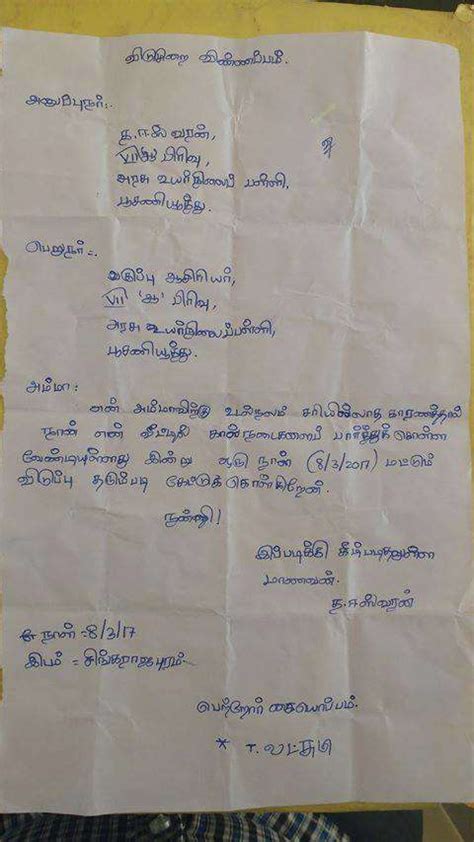 விடுமுறை விண்ணப்பம்.
அனுப்புநர்:-
த.ஈஸ்வரன்,
VII ஆ பிரிவு,
அரசு உயர்நிலைப் பள்ளி,
பூசணியூத்து.
பெறுநர்:-
வகுப்பு ஆசிரியர்,
VII 'ஆ' பிரிவு,
அரசு உயர்நிலைப்பள்ளி,
பூசணியூத்து.
அம்மா:
என் அம்மாவிற்கு உடல்நலம் சரியில்லாத காரணத்தால்
நான் என் வீட்டில் கால்நடைகளைப் பார்த்துக் கொள்ள
வேண்டியுள்ளது இன்று ஒரு நாள் (8/3/2017) மட்டும்
விடுப்பு தரும்படி கேட்டுக் கொள்கிறேன்.
நன்றி!
இப்படிக்கு கீழ்படிந்துள்ள
மாணவன்.
த.ஈஸ்வரன்
நாள் = 8/3/17
இடம் = சிங்கராஜபுரம்.
பெற்றோர் கையொப்பம்.
* T. லட்சுமி